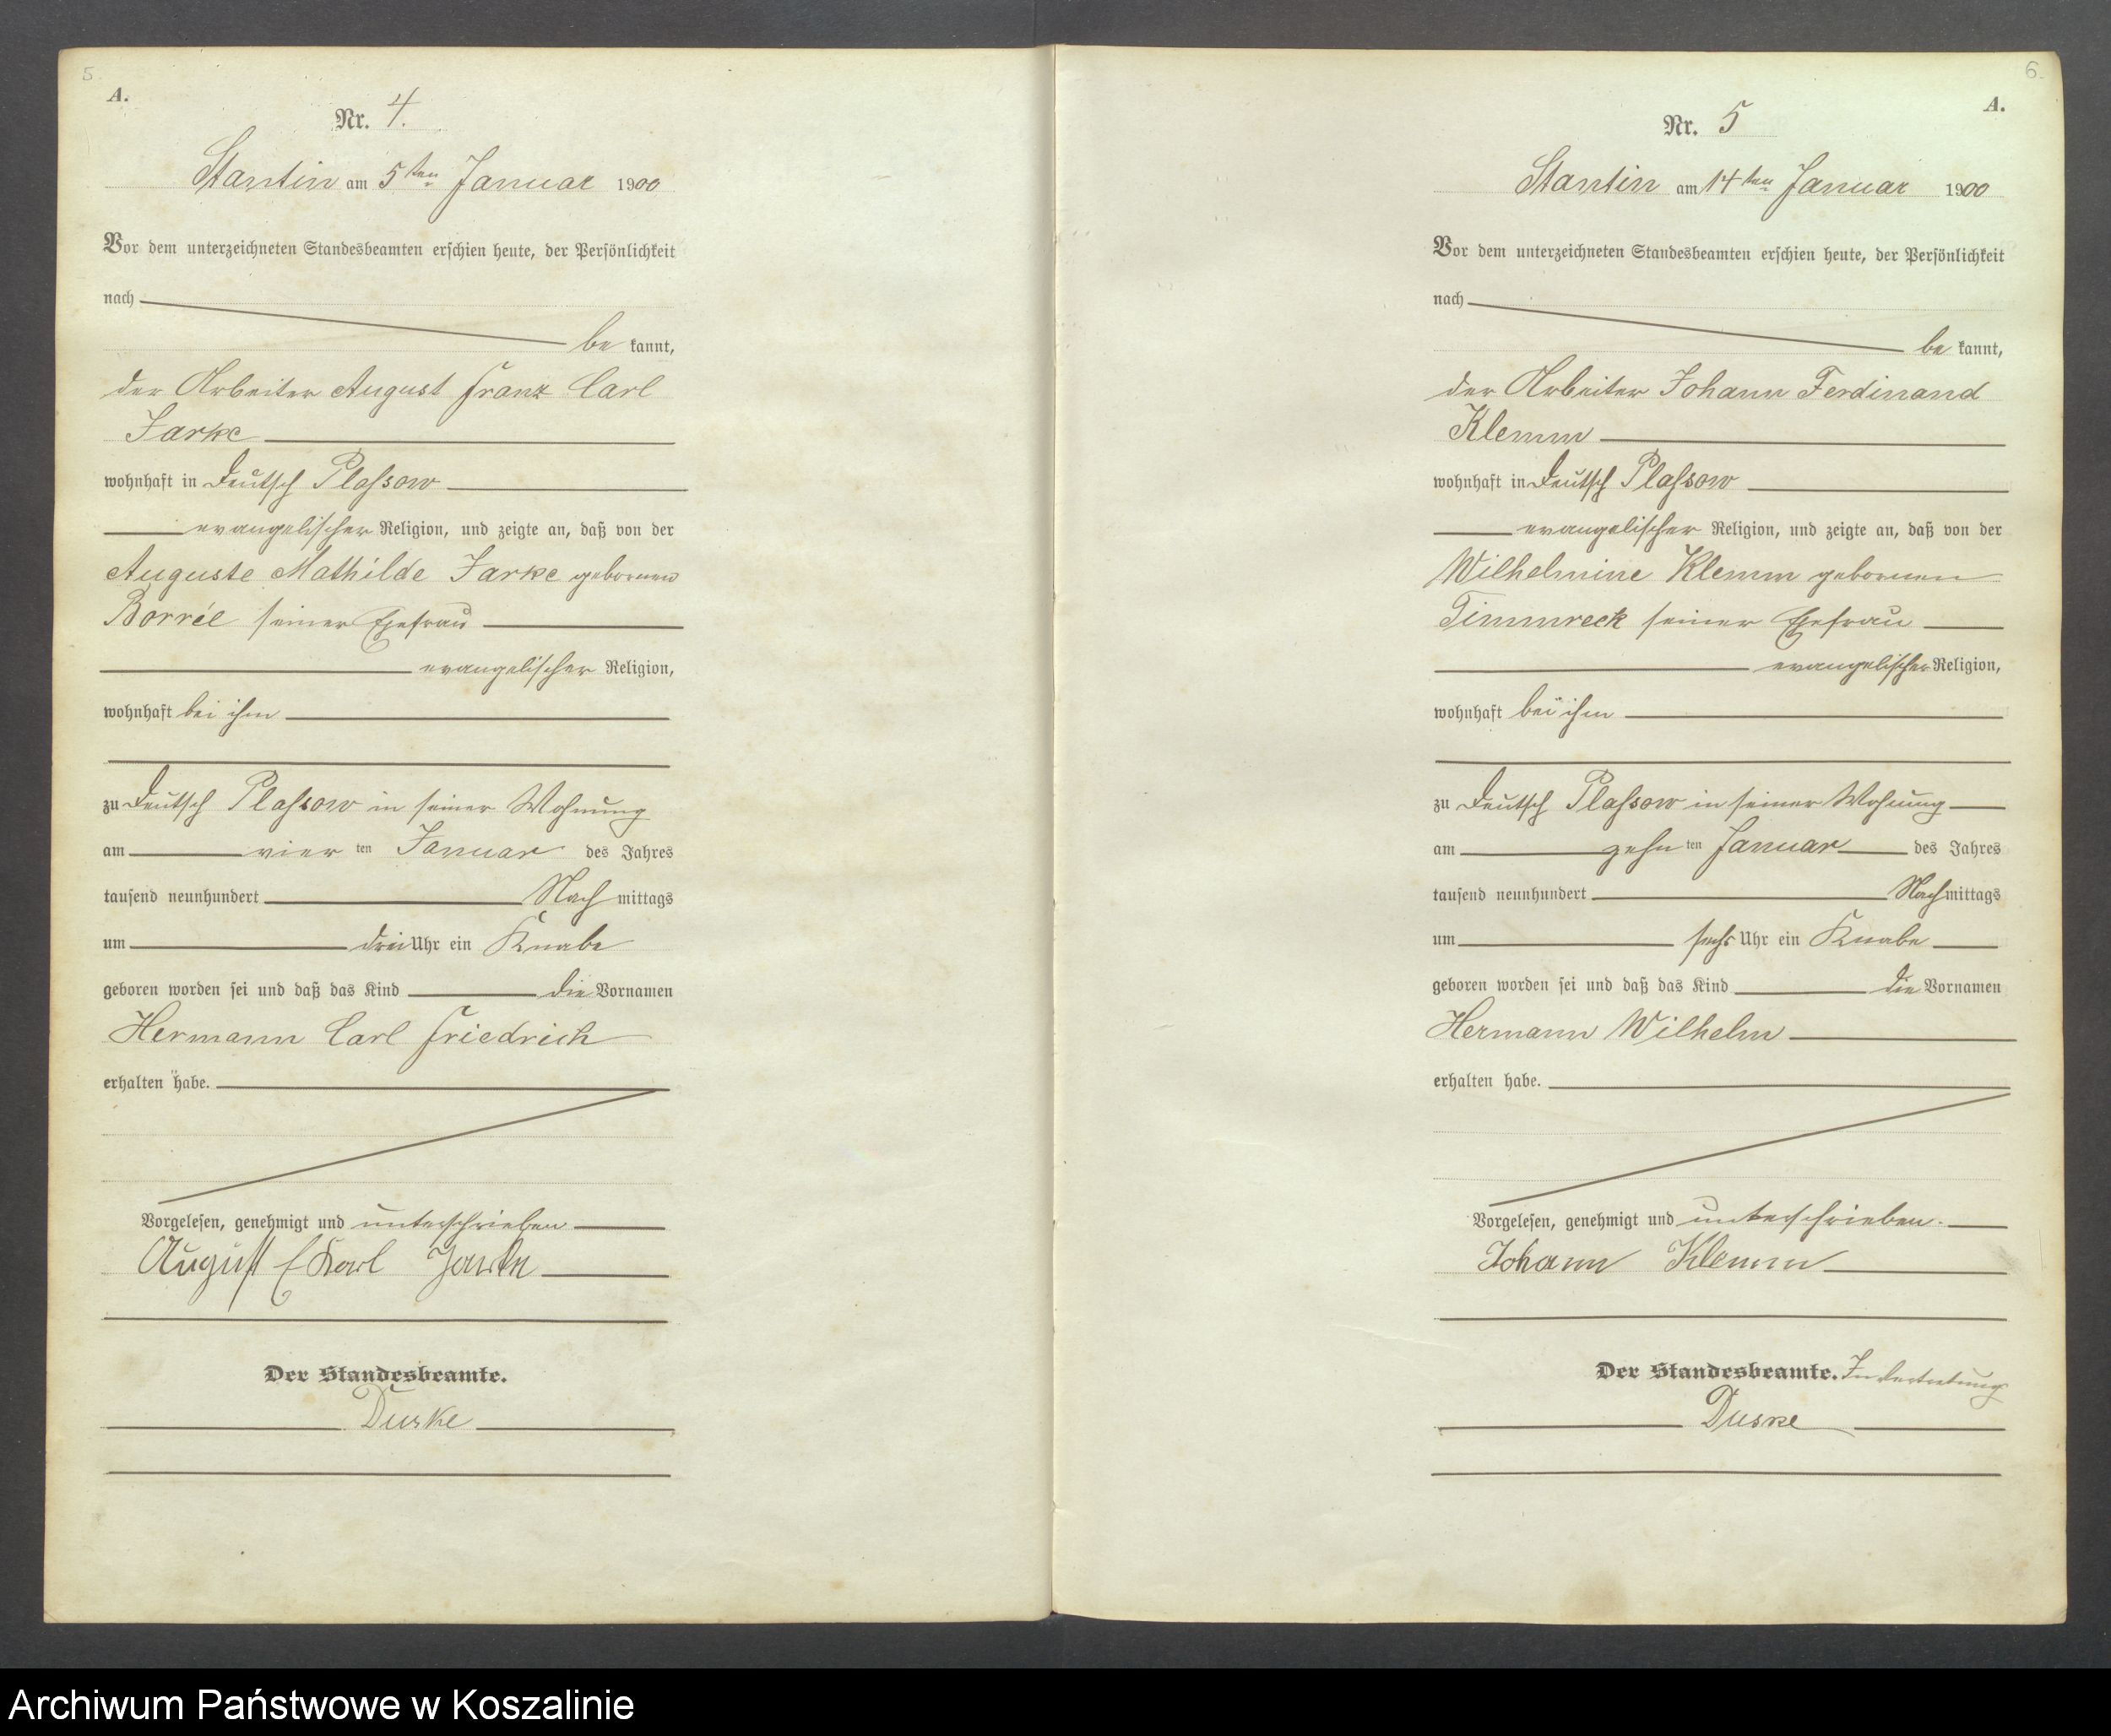 5.
A.
Nr. 4.
Stantin am 5ten Januar 1900
Vor dem unterzeichneten Standesbeamten erschien heute, der Persönlichkeit
nach
be kannt,
der Arbeiter August Franz Carl
Jarke
wohnhaft in Deutsch Plassow
evangelischer Religion, und zeigte an, daß von der
Auguste Mathilde Jarke gebornen
Borrée seiner Ehefrau
evangelischer Religion,
wohnhaft bei ihm
zu Deutsch Plassow in seiner Wohnung
am vier ten Januar des Jahres
tausend neunhundert Nach mittags
um drei Uhr ein Knabe
geboren worden sei und daß das Kind die Vornamen
Hermann Carl Friedrich
erhalten habe.
Vorgelesen, genehmigt und unterschrieben
August Karl Jarke
Der Standesbeamte.
Duske
6.
A.
Nr. 5
Stantin am 14ten Januar 1900
Vor dem unterzeichneten Standesbeamten erschien heute, der Persönlichkeit
nach
be kannt,
der Arbeiter Johann Ferdinand
Klemm
wohnhaft in Deutsch Plassow
evangelischer Religion, und zeigte an, daß von der
Wilhelmine Klemm gebornen
Timmreck seiner Ehefrau
evangelischer Religion,
wohnhaft bei ihm
zu Deutsch Plassow in seiner Wohnung
am zehn ten Januar des Jahres
tausend neunhundert Nach mittags
um sechs Uhr ein Knabe
geboren worden sei und daß das Kind die Vornamen
Hermann Wilhelm
erhalten habe.
Vorgelesen, genehmigt und unterschrieben.
Johann Klemm
Der Standesbeamte. In Vertretung
Duske
Archiwum Państwowe w Koszalinie